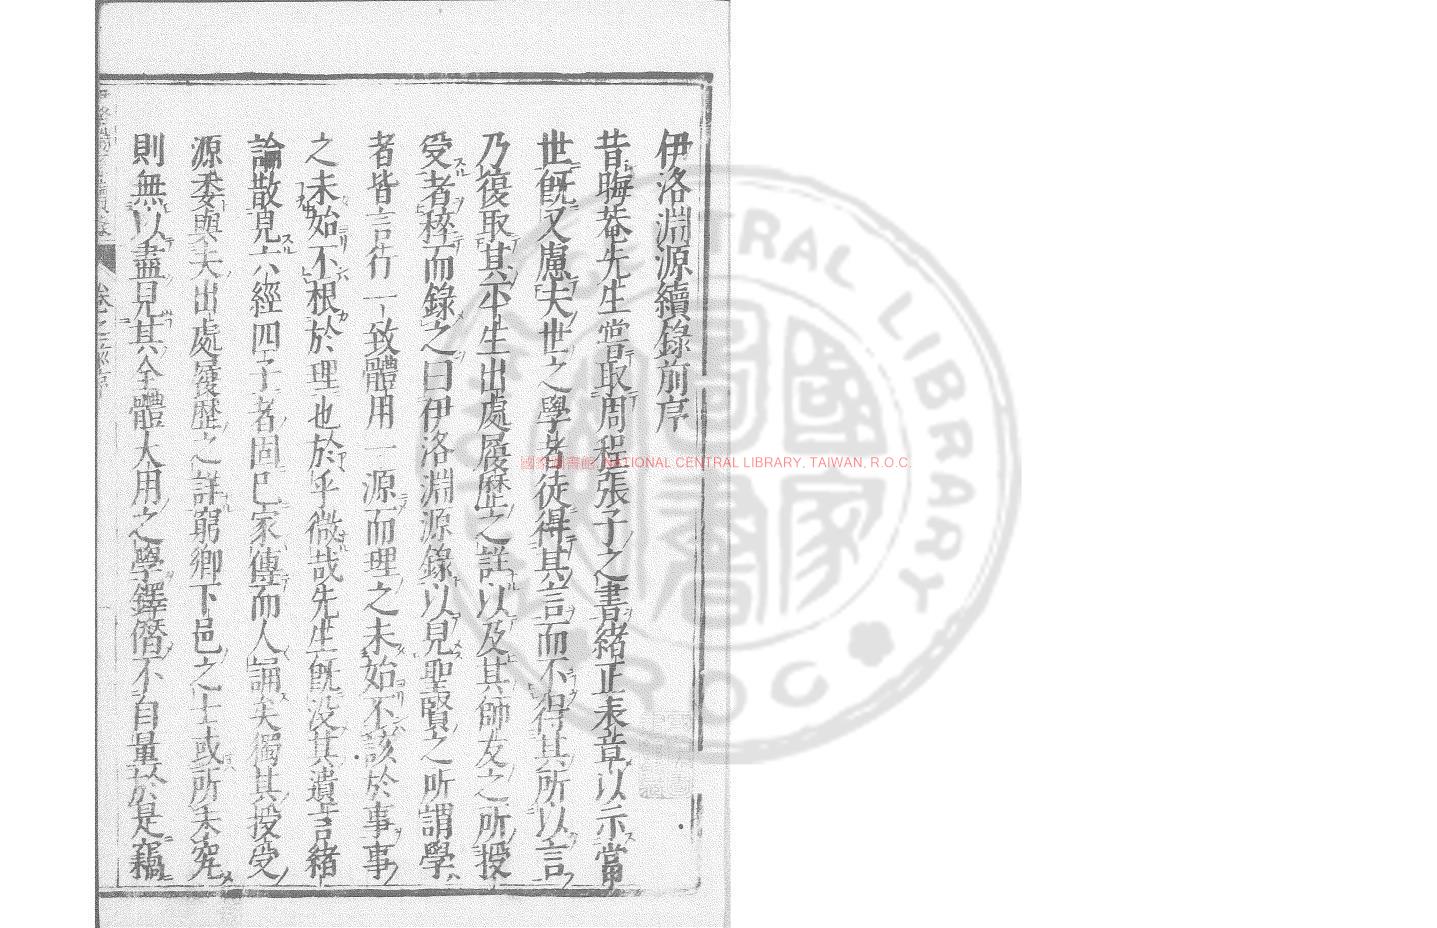 伊洛淵源續錄前序
昔晦菴先生嘗取周程張子之書緒正表章以示當
世旣又慮夫世之學者徒得其言而不得其所以言
乃復取其平生出處履歷之詳以及其師友之所授
受者稡而錄之曰伊洛淵源錄以見聖賢之所謂學
者皆言行一致體用一源而理之未始不該於事事
之未始不根於理也於乎微哉先生旣沒其遺言緒
論散見六經四子者固已家傳而人誦矣獨其授受
源委與夫出處履歷之詳窮鄉下邑之士或所未究
則無以盡見其全體大用之學鐸僭不自量於是竊
國家圖書館 NATIONAL CENTRAL LIBRARY, TAIWAN, R.O.C.
CENTRAL LIBRARY
R.O.C
國家圖書